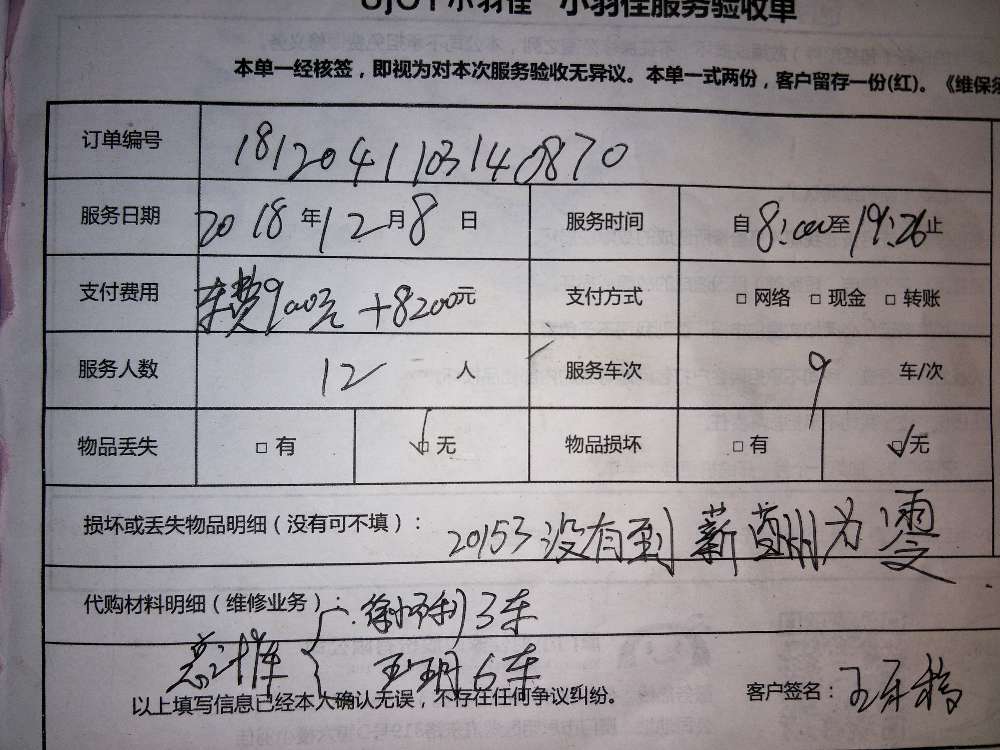 小羽佳服务验收单
本单一经核签，即视为对本次服务验收无异议。本单一式两份，客户留存一份(红)。《维保
订单编号 1812041103140870
服务日期 2018年12月8日 服务时间 自8:00至19:26止
支付费用 车费900元+8200元 支付方式 □网络 □现金 □转账
服务人数 12人 服务车次 9 车/次
物品丢失 □有 □无 物品损坏 □有 □无
损坏或丢失物品明细（没有可不填）： 20153没有到 薪 为 零
代购材料明细（维修业务）： 3车
总计 6车
以上填写信息已经本人确认无误，不存在任何争议纠纷。 客户签名：